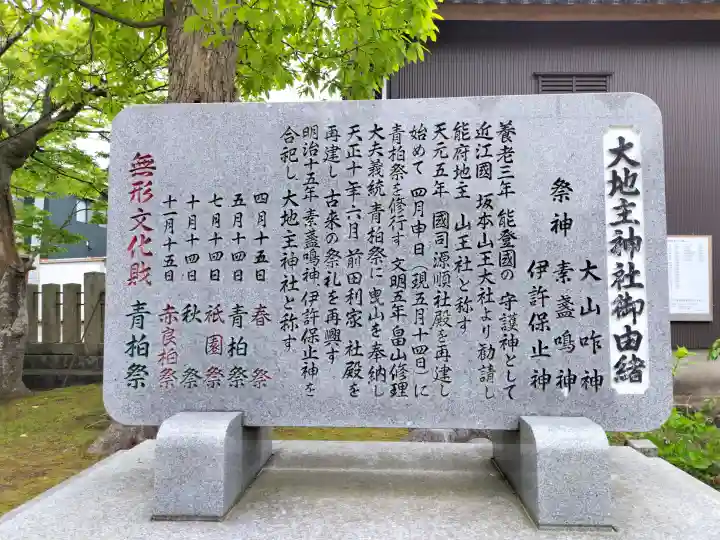 大地主神社御由緒
祭神
大山咋神
素盞鳴神
伊許保止神
養老三年 能登國の 守護神として
近江國 坂本山王大社より勧請し
能府地主 山王社と称す
天元五年 國司源順社殿を再建し
始めて 四月申日(現五月十四日)に
青柏祭を修行す 文明五年 畠山修理
大夫義統 青柏祭に曳山を奉納し
天正十年六月 前田利家 社殿を
再建し 古来の祭礼を再興す
明治十五年 素盞鳴神、伊許保止神を
合祀し 大地主神社と称す
四月十五日 春祭
五月十四日 青柏祭
七月十四日 祇園祭
十月十四日 秋祭
十一月十五日 赤良柏祭
無形文化財 青柏祭